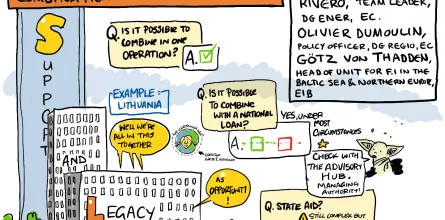 RIVERO, TEAM LEADER,
DG ENER, EC.
OLIVIER DUMOULIN,
POLICY OFFICER, DG REGIO, EC
GÖTZ VON THADDEN,
HEAD OF UNIT FOR F.I IN THE
BALTIC SEA & NORTHERN EUROPE,
EIB
SUPPORT
Q. IS IT POSSIBLE TO
COMBINE IN ONE
OPERATION?
A.
EXAMPLE:
LITHUANIA
WELL WE'RE
ALL IN THIS
TOGETHER
Q. IS IT POSSIBLE
TO COMBINE
WITH A NATIONAL
LOAN?
YES, UNDER
MOST
CIRCUMSTANCES
A.
CHECK WITH
THE ADVISORY
HUB.
MANAGING
AUTHORITY!
AND
LEGACY
AS
OPPORTUNITY!
Q. STATE AID?
STILL COMPLEX BUT